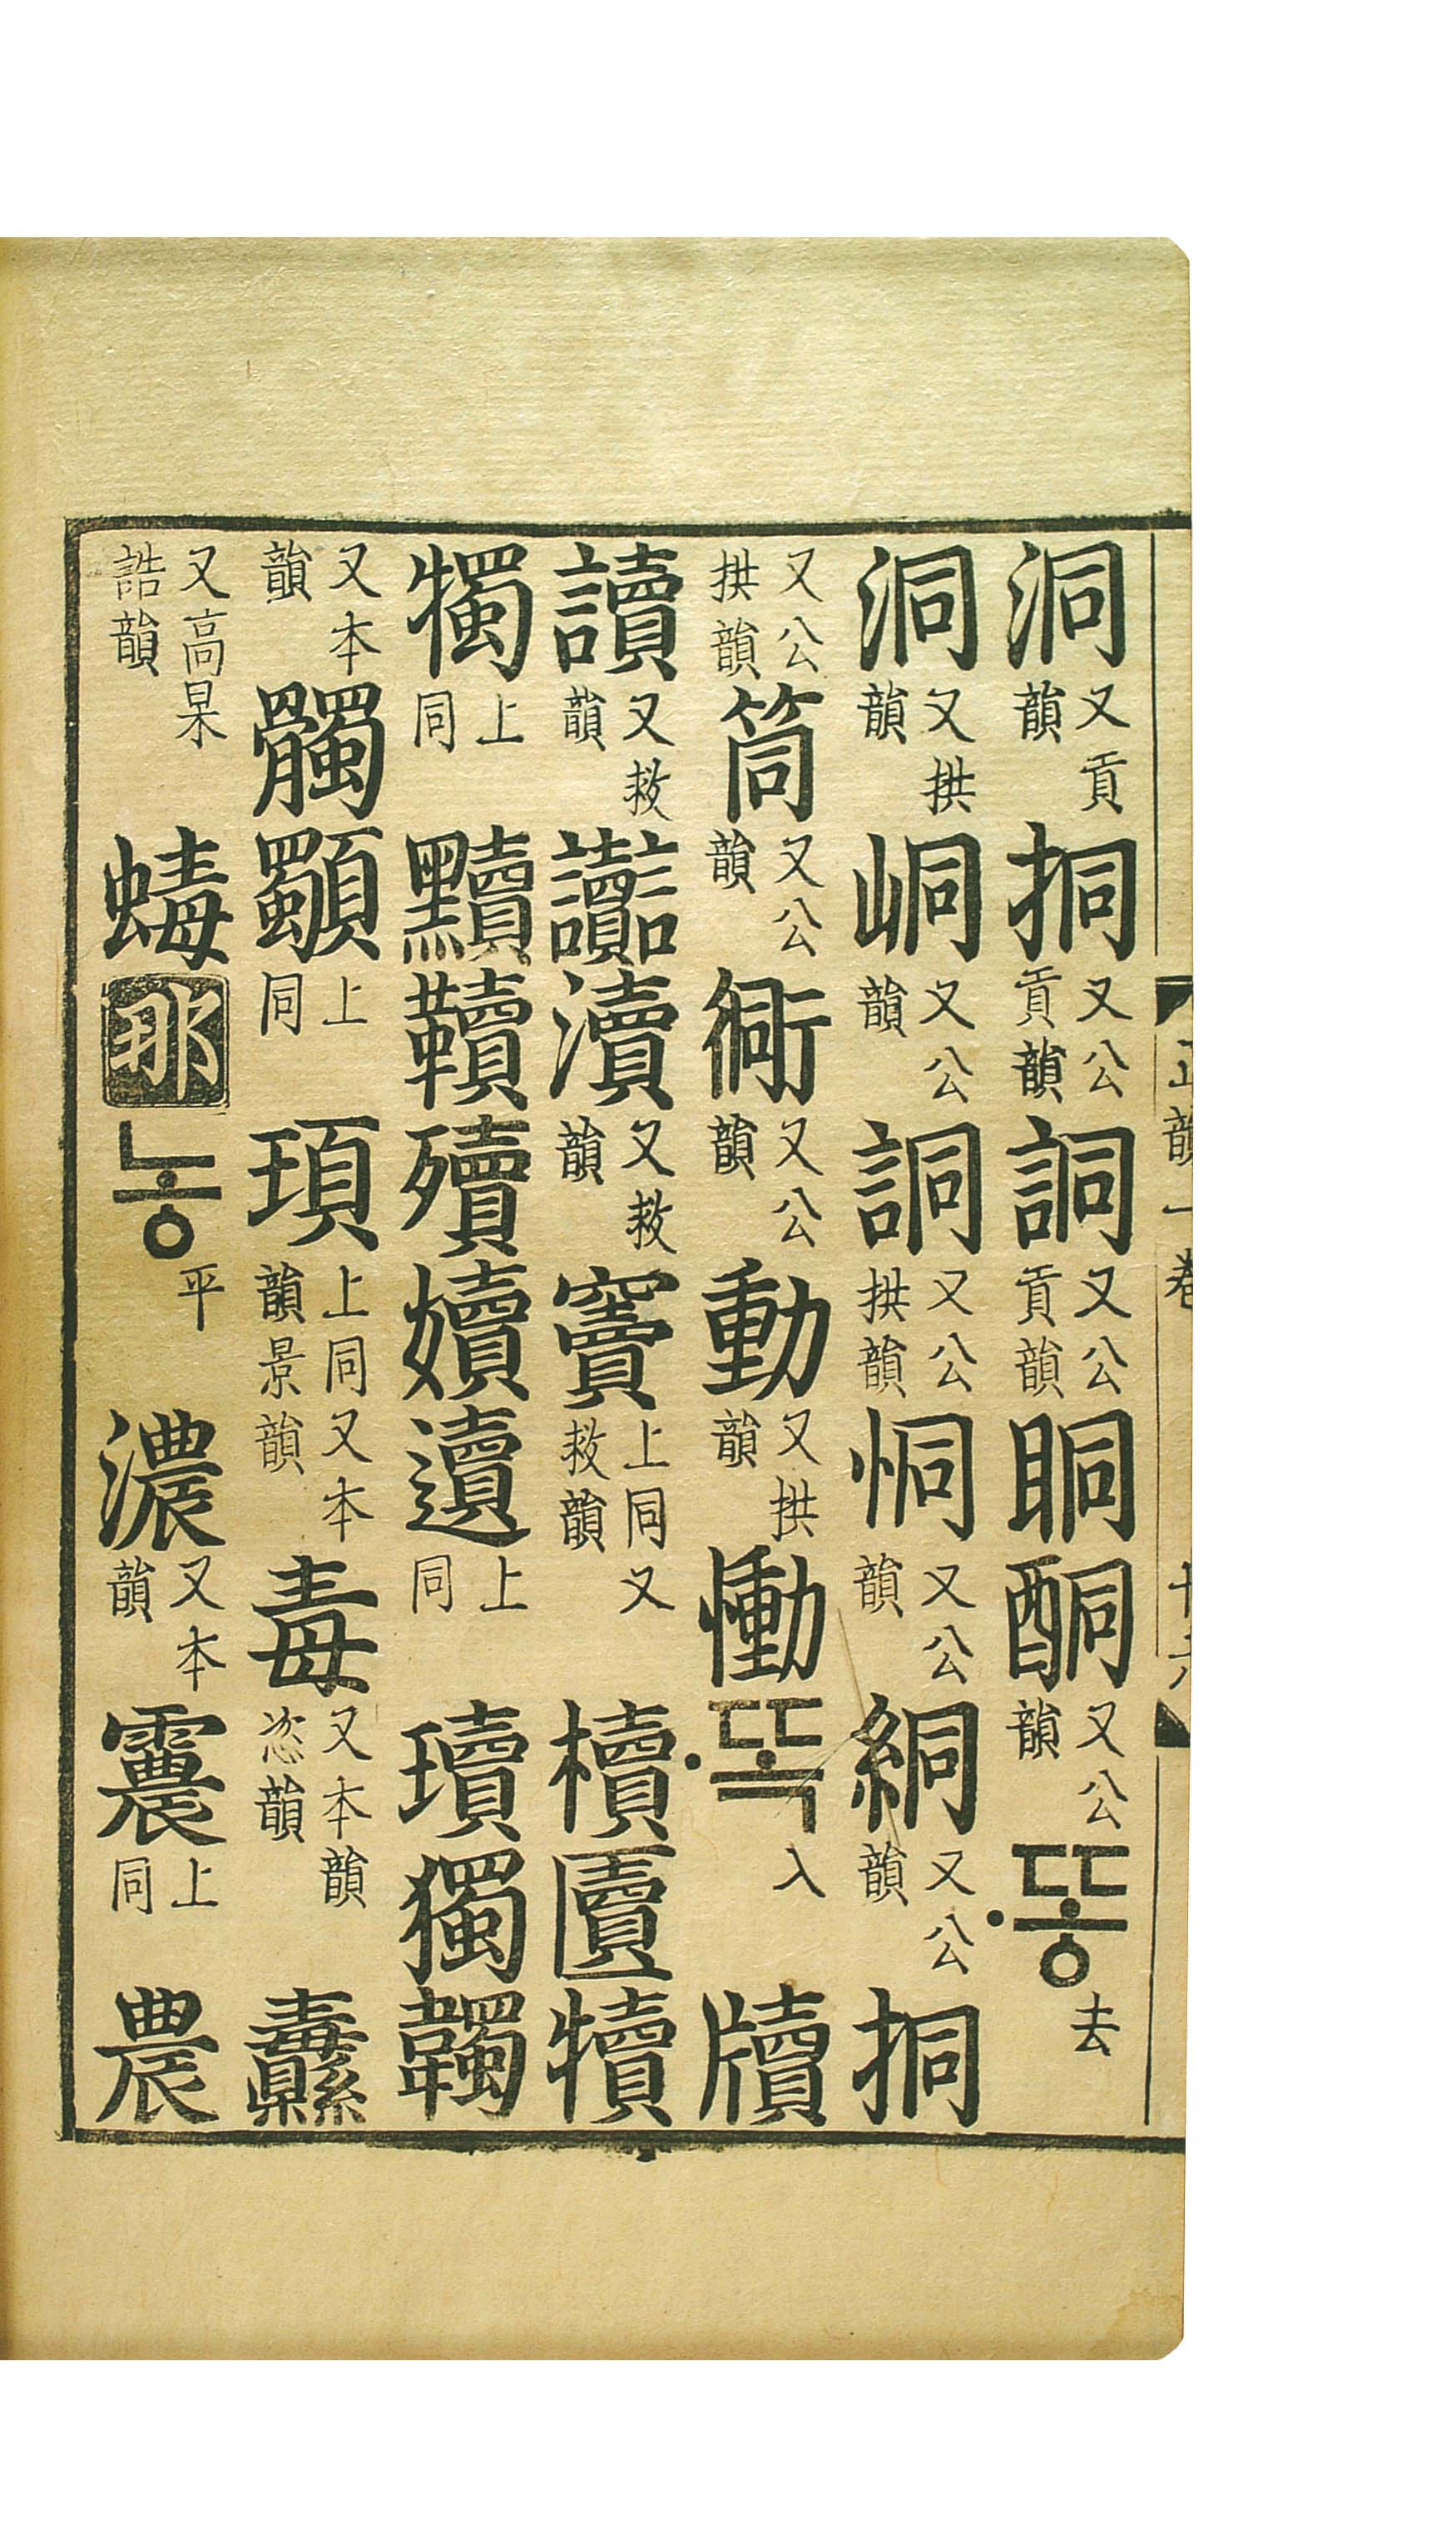 正韻一卷
洞又貢韻挏又公貢韻詷又公貢韻眮酮又公韻〮똥去
洞又拱韻峒又公韻詷又公拱韻恫又公韻絧又公韻挏
又公拱韻筒又公韻衕又公韻動又拱韻慟〮똑入牘
讀又救韻讟瀆又救韻竇上同又救韻櫝匵犢
上同黷韇殰嬻上同瓄獨韣
又本韻髑上同頊上同又本韻景韻毒又本韻恣韻纛
又高杲誥韻那농平濃又本韻上同農